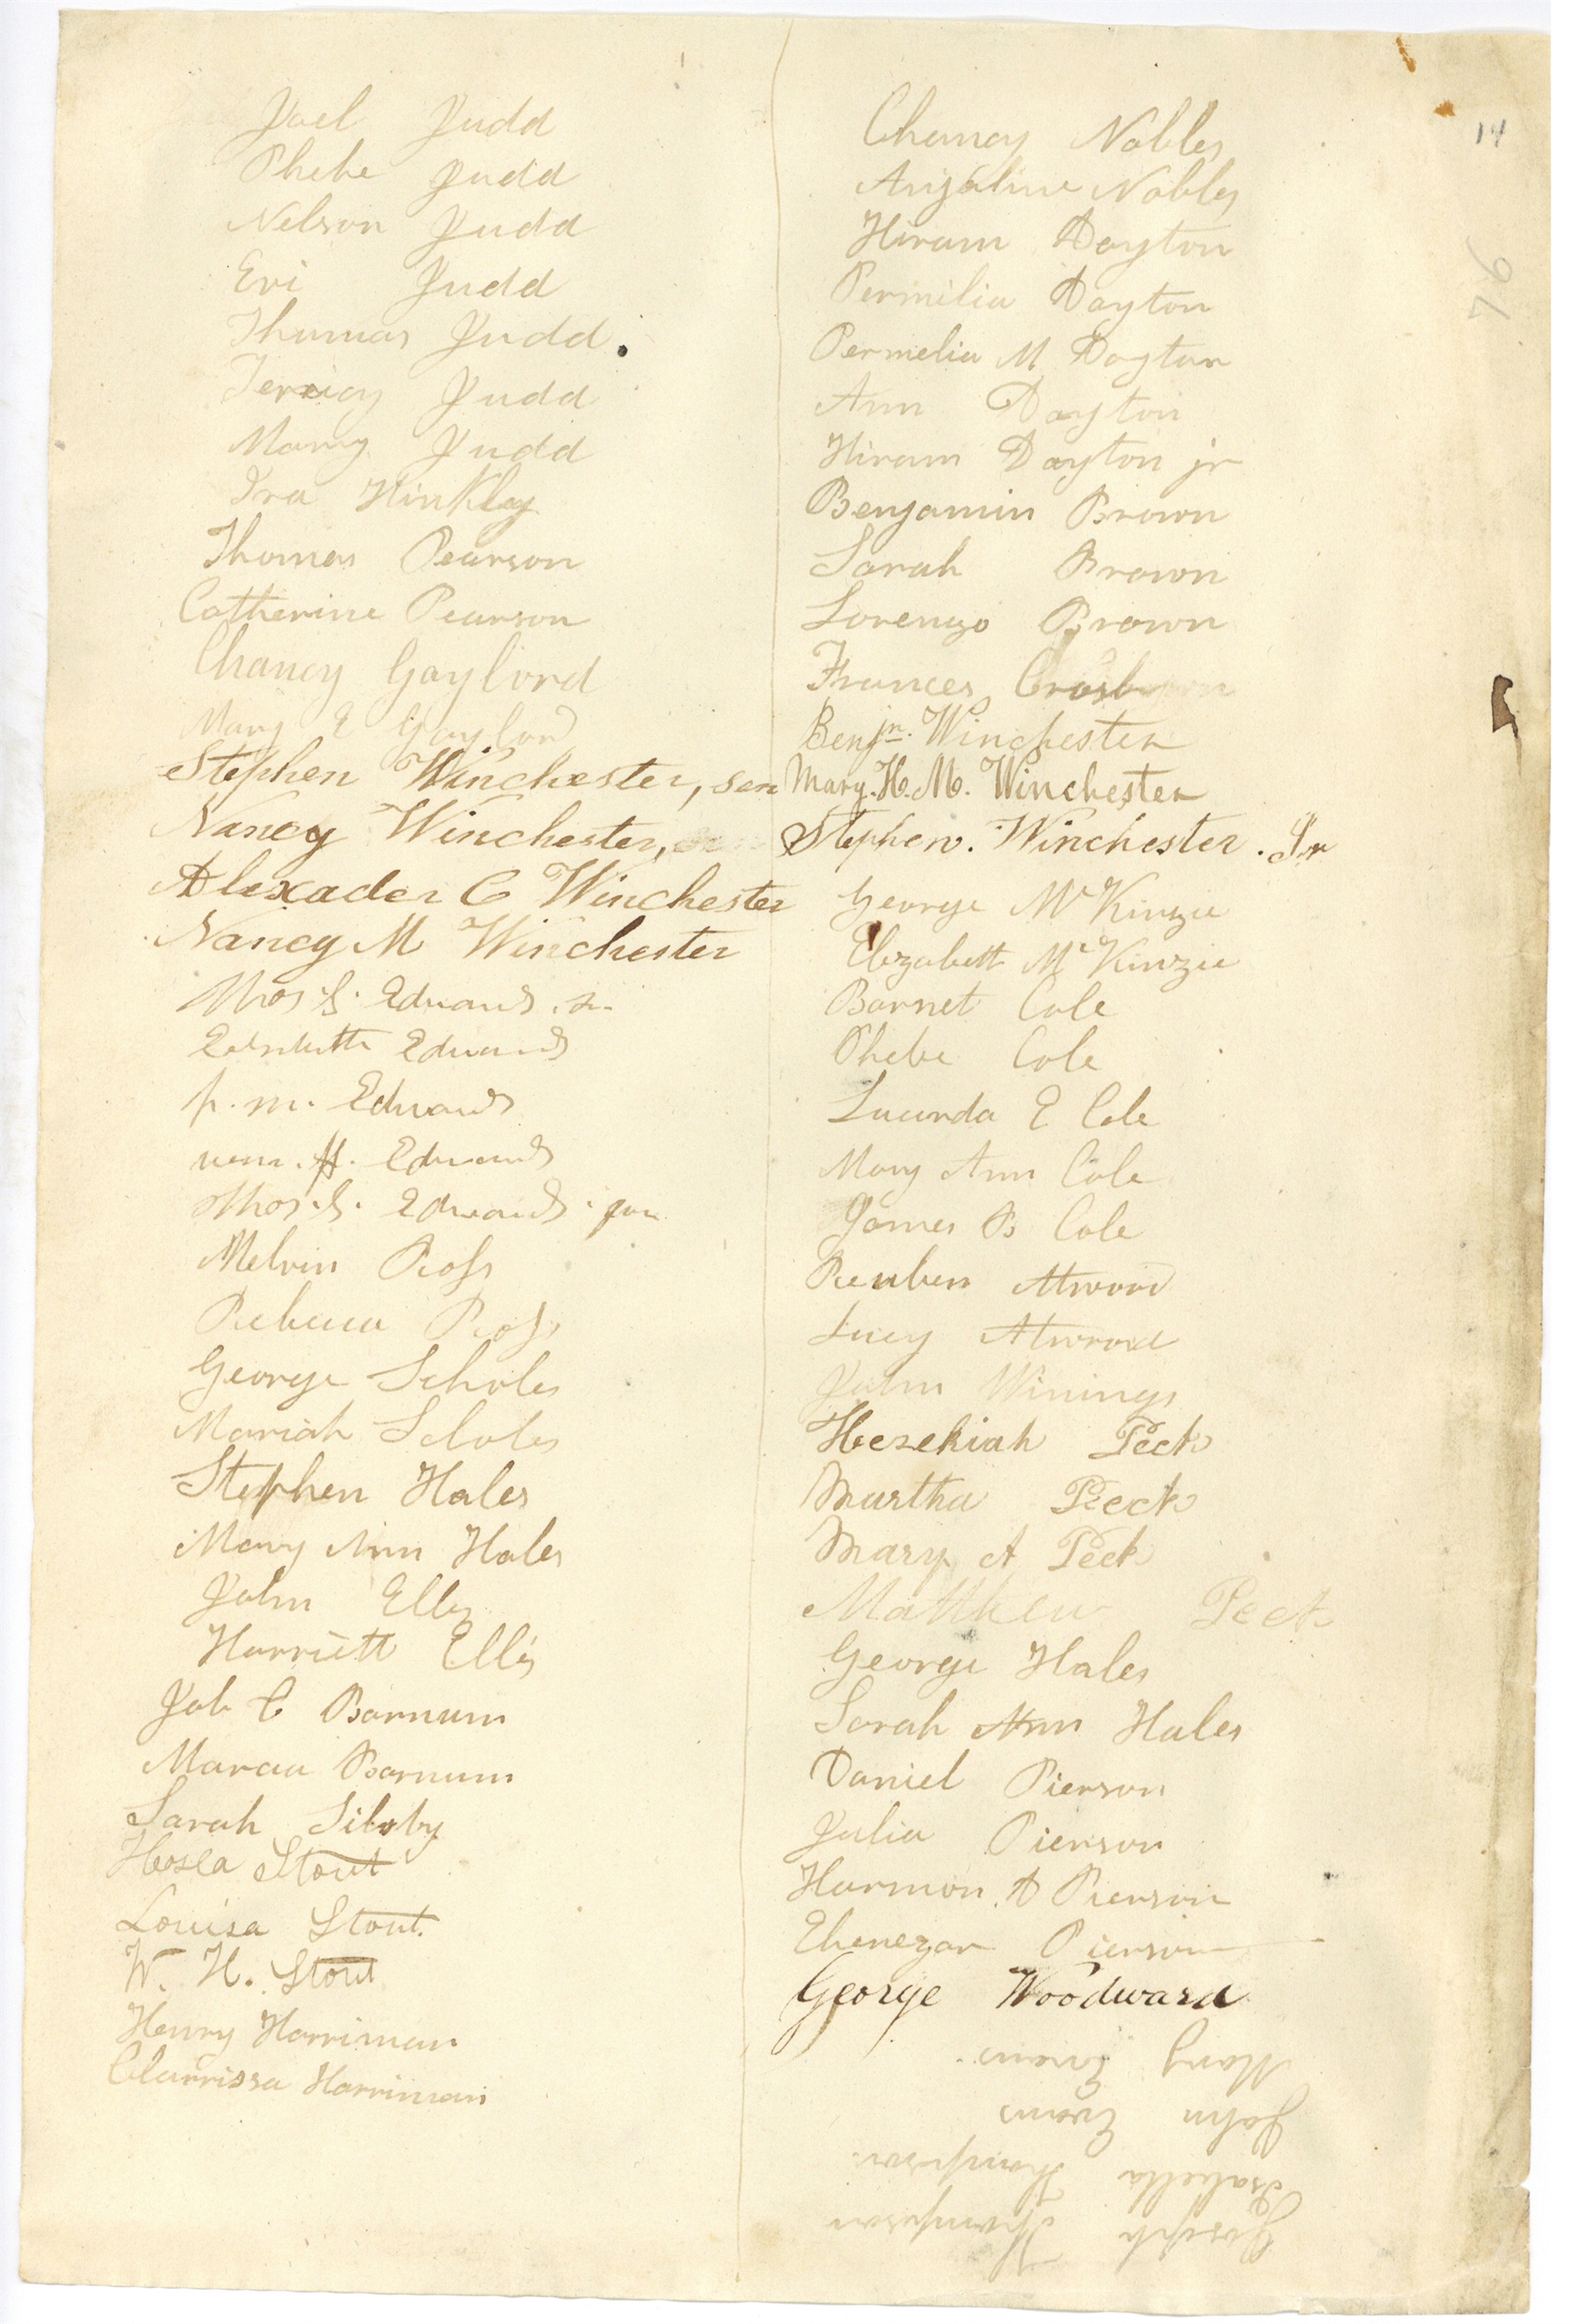 14
76
Joel Judd
Phebe Judd
Nelson Judd
Eri Judd
Thomas Judd
Judd
Mary Judd
Ira Hinkley
Thomas Pearson
Catherine Pearson
Chancy Gaylord
Mary E Gaylord
Stephen Winchester, sen
Nancy Winchester,
Alexader C Winchester
Nancy M Winchester
Thos. S. Edwards. sr.
Edwards
p. m. Edwards
wm. H. Edwards
Thos. S. Edwards. jun
Melvin Ross
Rebecca Ross
George Scholes
Mariah Scholes
Stephen Hales
Mary Ann Hales
John Ellis
Harriett Ellis
Job C Barnum
Marcia Barnum
Sarah Silsby
Hosea Stout
Louisa Stout.
W. H. Stout
Henry Harriman
Clarrissa Harriman
Chancy Nobles
Anjaline Nobles
Hiram Dayton
Permilia Dayton
Permelia M Dayton
Ann Dayton
Hiram Dayton jr
Benjamin Brown
Sarah Brown
Lorenzo Brown
Frances
Benjn. Winchester
Mary. H. M. Winchester
Stephen. Winchester. Jr
George McKinzie
Elezabett McKinzie
Barnet Cole
Phebe Cole
Lucinda E Cole
Mary Ann Cole
James B Cole
Reuben Atwood
Lucy Atwood
John Winings
Hezekiah Peck
Martha Peck
Mary A Peck
Matthew Peck
George Hales
Sarah Ann Hales
Daniel Pierson
Julia Pierson
Harmon A Pierson
Ebenezar Pierson
George Woodward
Joseph Thompson
Isabella Thompson
John Evans
Mary Evans